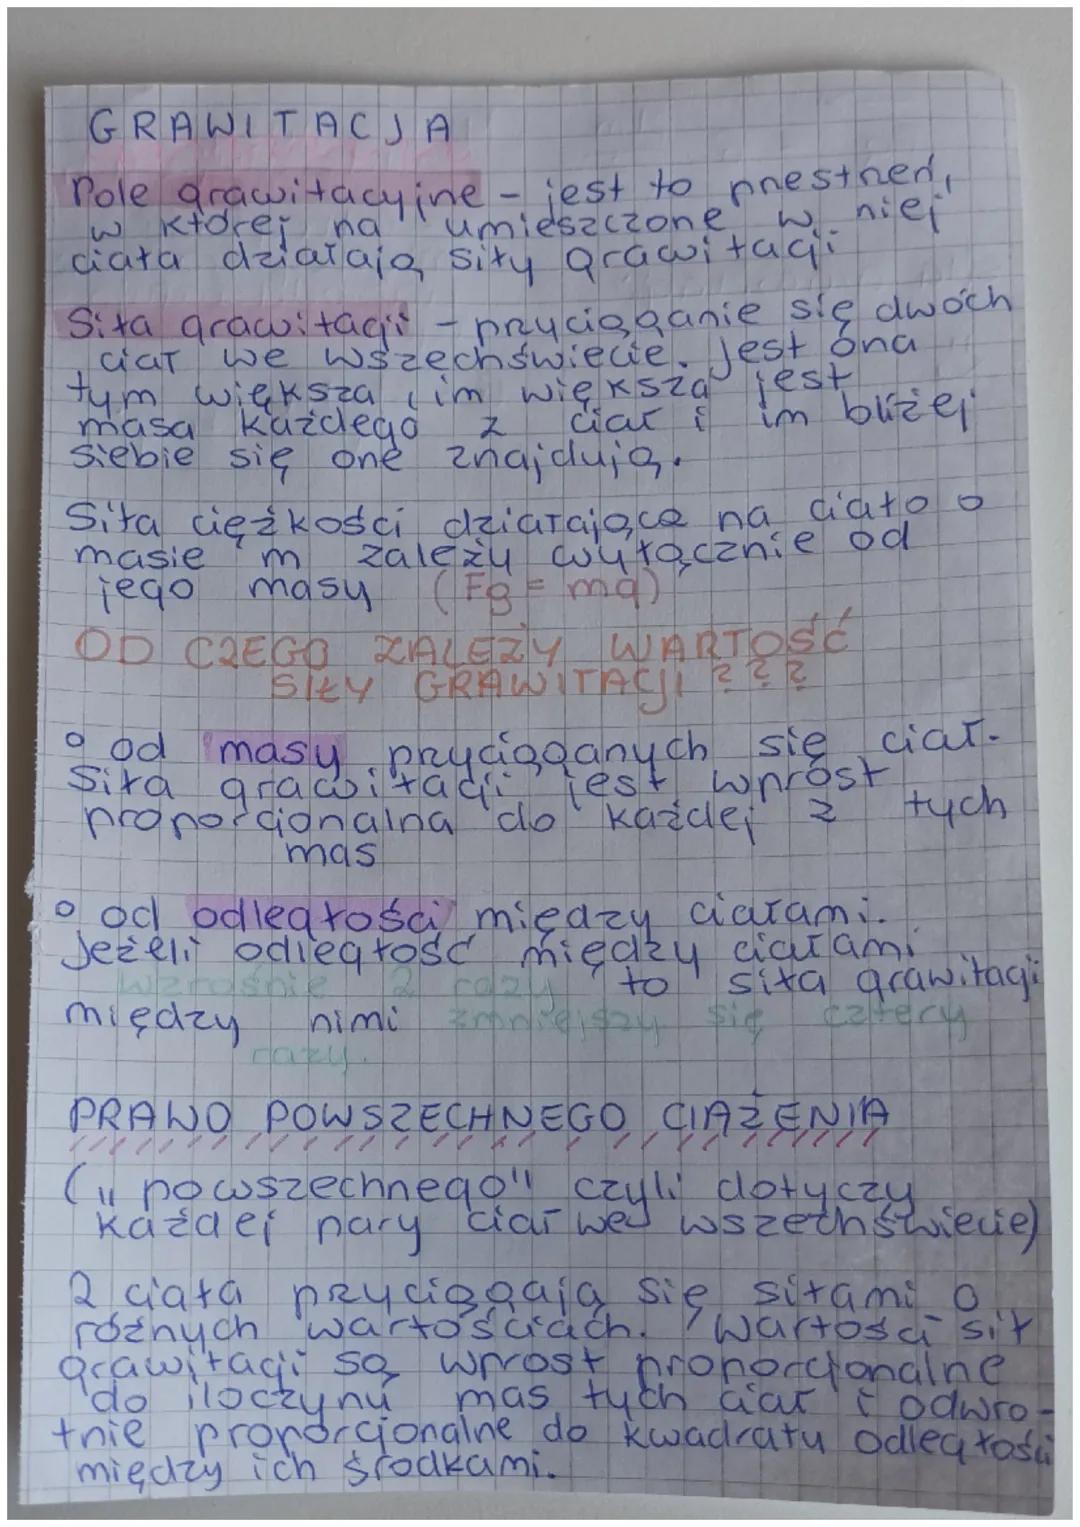 GRAWITACJA
Pole grawitacyjne - jest to przestrzeń,
w której na umieszczone w niej
ciała działają siły grawitacji
Siła grawitacji - przyciąganie się dwóch
ciał we wszechświecie. Jest ona
tym większa, im większa jest
masa każdego z ciał i im bliżej
siebie się one znajdują.
Siła ciężkości działająca na ciało o
masie m zależy wyłącznie od
jego masy (Fg = mg)
OD CZEGO ZALEŻY WARTOŚĆ
SIŁY GRAWITACJI ???
od masy przyciąganych się ciał.
Siła grawitacji jest wprost
proporcjonalna do każdej z tych
mas
od odległości między ciałami.
Jeżeli odległość między ciałami
wzrośnie 2 razy to siła grawitacji
między nimi zmniejszy się cztery
razy.
PRAWO POWSZECHNEGO CIĄŻENIA
(„powszechnego" czyli dotyczy
każdej pary ciał we wszechświecie)
2 ciała przyciągają się siłami o
różnych wartościach. Wartości sił
grawitacji są wprost proporcjonalne
do iloczynu mas tych ciał i odwro-
tnie proporcjonalne do kwadratu odległości
między ich środkami.